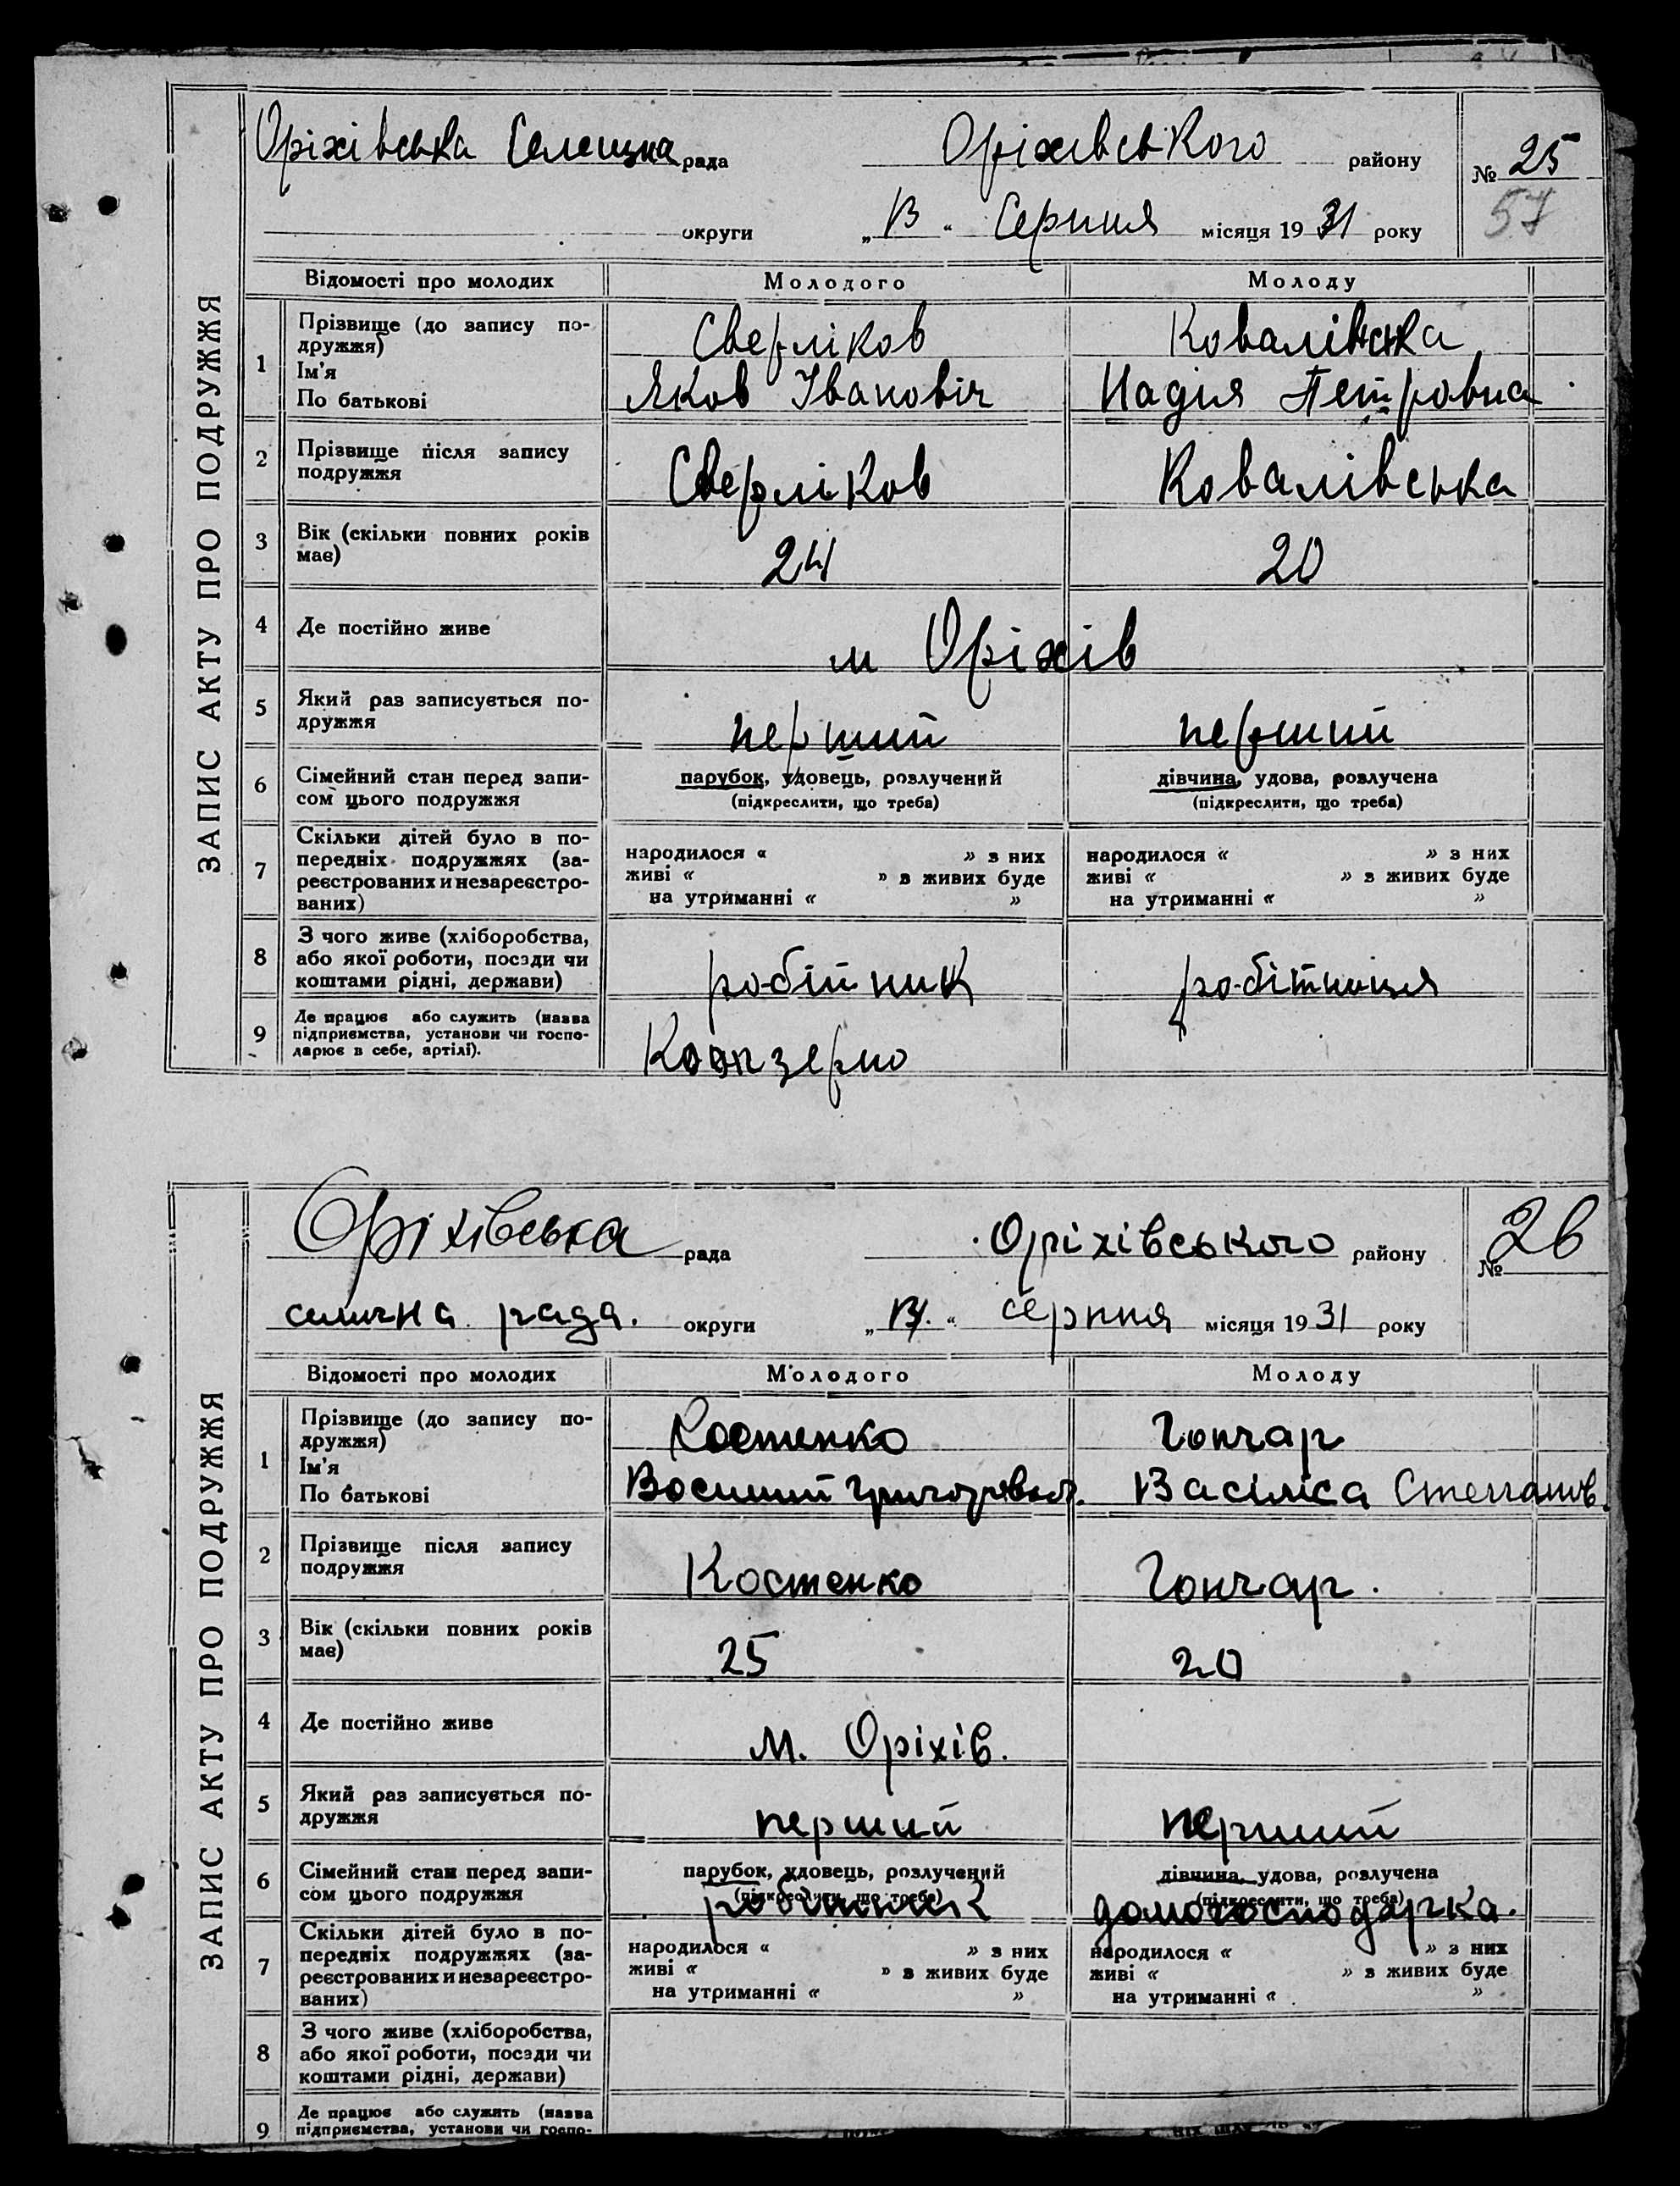 ЗАПИС АКТУ ПРО ПОДРУЖЖЯ
Оріхівська Селещна рада Оріхивського району № 25
57
округи „13“ Серпня місяця 1931 року
Відомості про молодих Молодого Молоду
1 Прізвище (до запису по-
дружжя) Сверліков Ковалівська
Ім'я
По батькові Яков Іванович Надия Петровна
2 Прізвище після запису
подружжя Сверліков Ковалівська
3 Вік (скільки повних років
має) 24 20
4 Де постійно живе м Оріхів
5 Який раз записується по-
дружжя перший перший
6 Сімейний стан перед запи-
сом цього подружжя парубок, удовець, розлучений дівчина, удова, розлучена
(підкреслити, що треба) (підкреслити, що треба)
7 Скільки дітей було в по-
передніх подружжях (за-
реєстрованих и незареєстро-
ваних) народилося « » з них народилося « » з них
живі « » в живих буде живі « » в живих буде
на утриманні « » на утриманні « »
8 З чого живе (хліборобства,
або якої роботи, посади чи
коштами рідні, держави) робітник робітниця
9 Де працює або служить (назва
підприємства, установи чи госпо-
дарює в себе, артілі). Коопзерно
ЗАПИС АКТУ ПРО ПОДРУЖЖЯ
Оріхівська рада Оріхівського району № 26
рада. округи серпня місяця 1931 року
Відомості про молодих Молодого Молоду
1 Прізвище (до запису по-
дружжя) Костенко Гончар
Ім'я
По батькові Василіса Степанов.
2 Прізвище після запису
подружжя Костенко Гончар.
3 Вік (скільки повних років
має) 25 20
4 Де постійно живе м. Оріхів.
5 Який раз записується по-
дружжя перший перший
6 Сімейний стан перед запи-
сом цього подружжя парубок, удовець, розлучений дівчина, удова, розлучена
(підкреслити, що треба) (підкреслити, що треба)
робітник домогосподарка.
7 Скільки дітей було в по-
передніх подружжях (за-
реєстрованих и незареєстро-
ваних) народилося « » з них народилося « » з них
живі « » в живих буде живі « » в живих буде
на утриманні « » на утриманні « »
8 З чого живе (хліборобства,
або якої роботи, посади чи
коштами рідні, держави)
9 Де працює або служить (назва
підприємства, установи чи госпо-